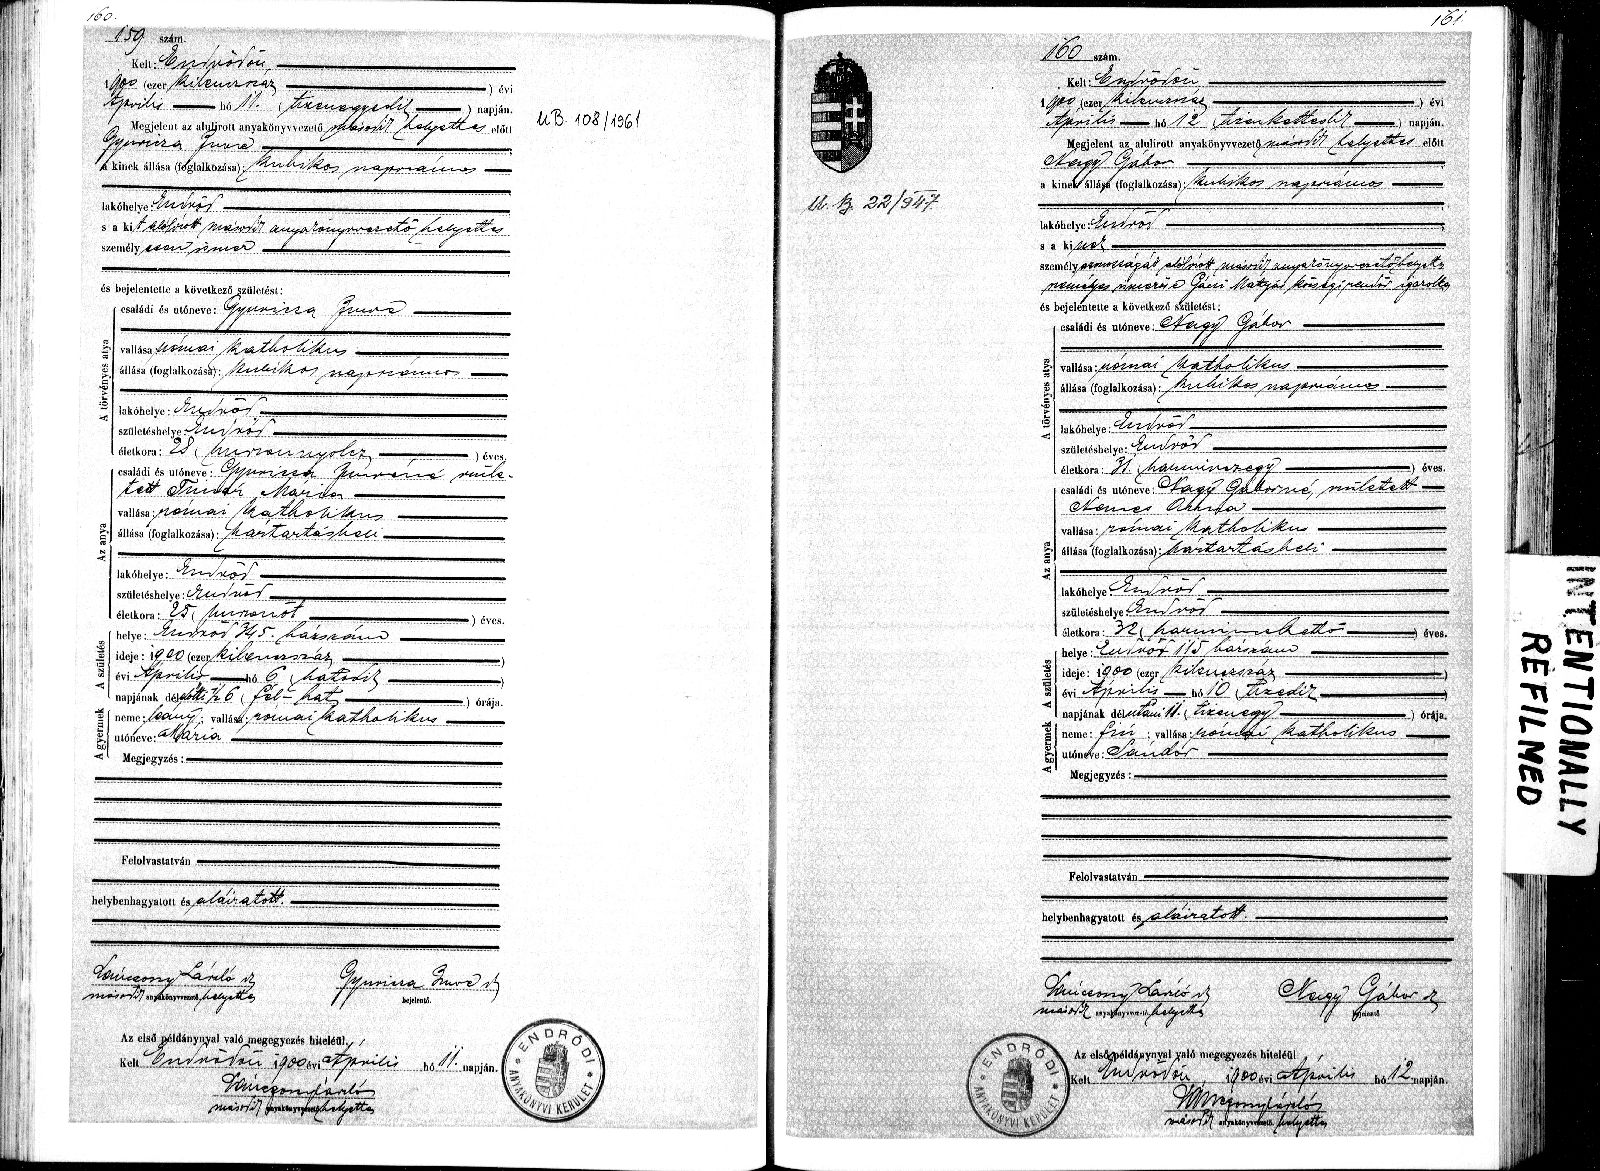 160.
159 szám.
Kelt: Endrődön,
1900 (ezer kilenczszáz ) évi
Április hó 11. ( tizenegyedik ) napján.
Megjelent az alulirott anyakönyvvezető másodk helyettes előtt
Gyuricza Imre
a kinek állása (foglalkozása): kubikos napszámos
lakóhelye: Endrőd
s a kit alólirott másodk anyakönyvvezető helyettes
személyesen ismer
és bejelentette a következő születést:
A törvényes atya
családi és utóneve: Gyuricza Imre
vallása: római katholikus
állása (foglalkozása): kubikos napszámos
lakóhelye: Endrőd
születéshelye: Endrőd
életkora: 28 ( huszonnyolcz ) éves.
Az anya
családi és utóneve: Gyuricza Imréné szüle-
tett Tímár Mária
vallása: római katholikus
állása (foglalkozása): háztartásbeli
lakóhelye: Endrőd
születéshelye: Endrőd
életkora: 25 ( huszonöt ) éves.
A születés
helye: Endrőd 345. házszám
ideje: 1900 (ezer kilenczszáz )
évi Április hó 6 ( hatodik )
napjának délelőtti ½ 6 ( fél-hat ) órája.
A gyermek
neme: leány; vallása: római katholikus
utóneve: Mária
Megjegyzés:
Felolvastatván
helybenhagyatott és aláiratott.
László dk Gyuricza Imre dk
másodk anyakönyvvezető helyettes bejelentő.
Az első példánynyal való megegyezés hiteléül.
Kelt Endrődön 1900 évi Április hó 11. napján.
László
másodk anyakönyvvezető helyettes
ENDRŐDI
ANYAKÖNYVI KERÜLET
UB. 108/1961
161
U. B. 22/947
160 szám.
Kelt: Endrődön,
1900 (ezer kilenczszáz ) évi
Április hó 12 ( tizenkettedik ) napján.
Megjelent az alulirott anyakönyvvezető másodk helyettes előtt
Nagy Gábor
a kinek állása (foglalkozása): kubikos napszámos
lakóhelye: Endrőd
s a kinek
személyazonosságát alólirott másodk anyakönyvvezető helyettes
személyes ismerőse Mátyás községi rendőr igazolta
és bejelentette a következő születést:
A törvényes atya
családi és utóneve: Nagy Gábor
vallása: római katholikus
állása (foglalkozása): kubikos napszámos
lakóhelye: Endrőd
születéshelye: Endrőd
életkora: 31 ( harminczegy ) éves.
Az anya
családi és utóneve: Nagy Gáborné, született
Nemes
vallása: római katholikus
állása (foglalkozása): háztartásbeli
lakóhelye: Endrőd
születéshelye: Endrőd
életkora: 32 ( harminczkettő ) éves.
A születés
helye: Endrőd 115 házszám
ideje: 1900 (ezer kilenczszáz )
évi Április hó 10 ( tizedik )
napjának délutáni 11. ( tizenegy ) órája.
A gyermek
neme: fiú; vallása: római katholikus
utóneve: Sándor
Megjegyzés:
Felolvastatván
helybenhagyatott és aláiratott.
László dk Nagy Gábor dk
másodk anyakönyvvezető helyettes bejelentő
Az első példánynyal való megegyezés hiteléül
Kelt Endrődön, 1900 évi Április hó 12 napján.
László
másodk anyakönyvvezető helyettes
ENDRŐDI
ANYAKÖNYVI KERÜLET
INTENTIONALLY
REFILMED